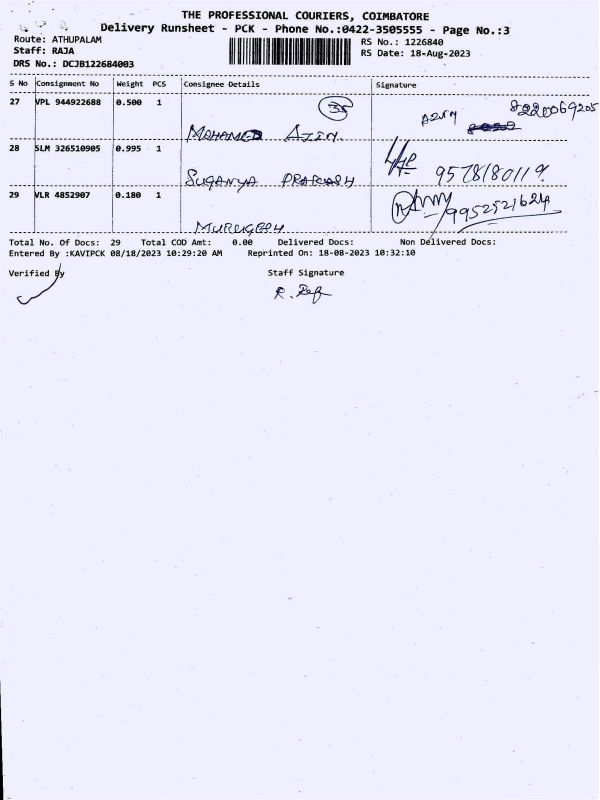 THE PROFESSIONAL COURIERS, COIMBATORE
Delivery Runsheet - PCK - Phone No.:0422-3505555 - Page No.:3
Route: ATHUPALAM
RS No.: 1226840
Staff: RAJA
RS Date: 18-Aug-2023
DRS No.: DCJB122684003
S No Consignment No Weight PCS Consignee Details Signature
27 VPL 944922688 0.500 1 35 8220069205
MOHAMED AJIN.
28 SLM 326510905 0.995 1
SUGANYA PRAKASH
29 VLR 4852907 0.180 1 9952521624
MURUGESH
Total No. Of Docs: 29 Total COD Amt: 0.00 Delivered Docs: Non Delivered Docs:
Entered By :KAVIPCK 08/18/2023 10:29:20 AM Reprinted On: 18-08-2023 10:32:10
Verified By Staff Signature